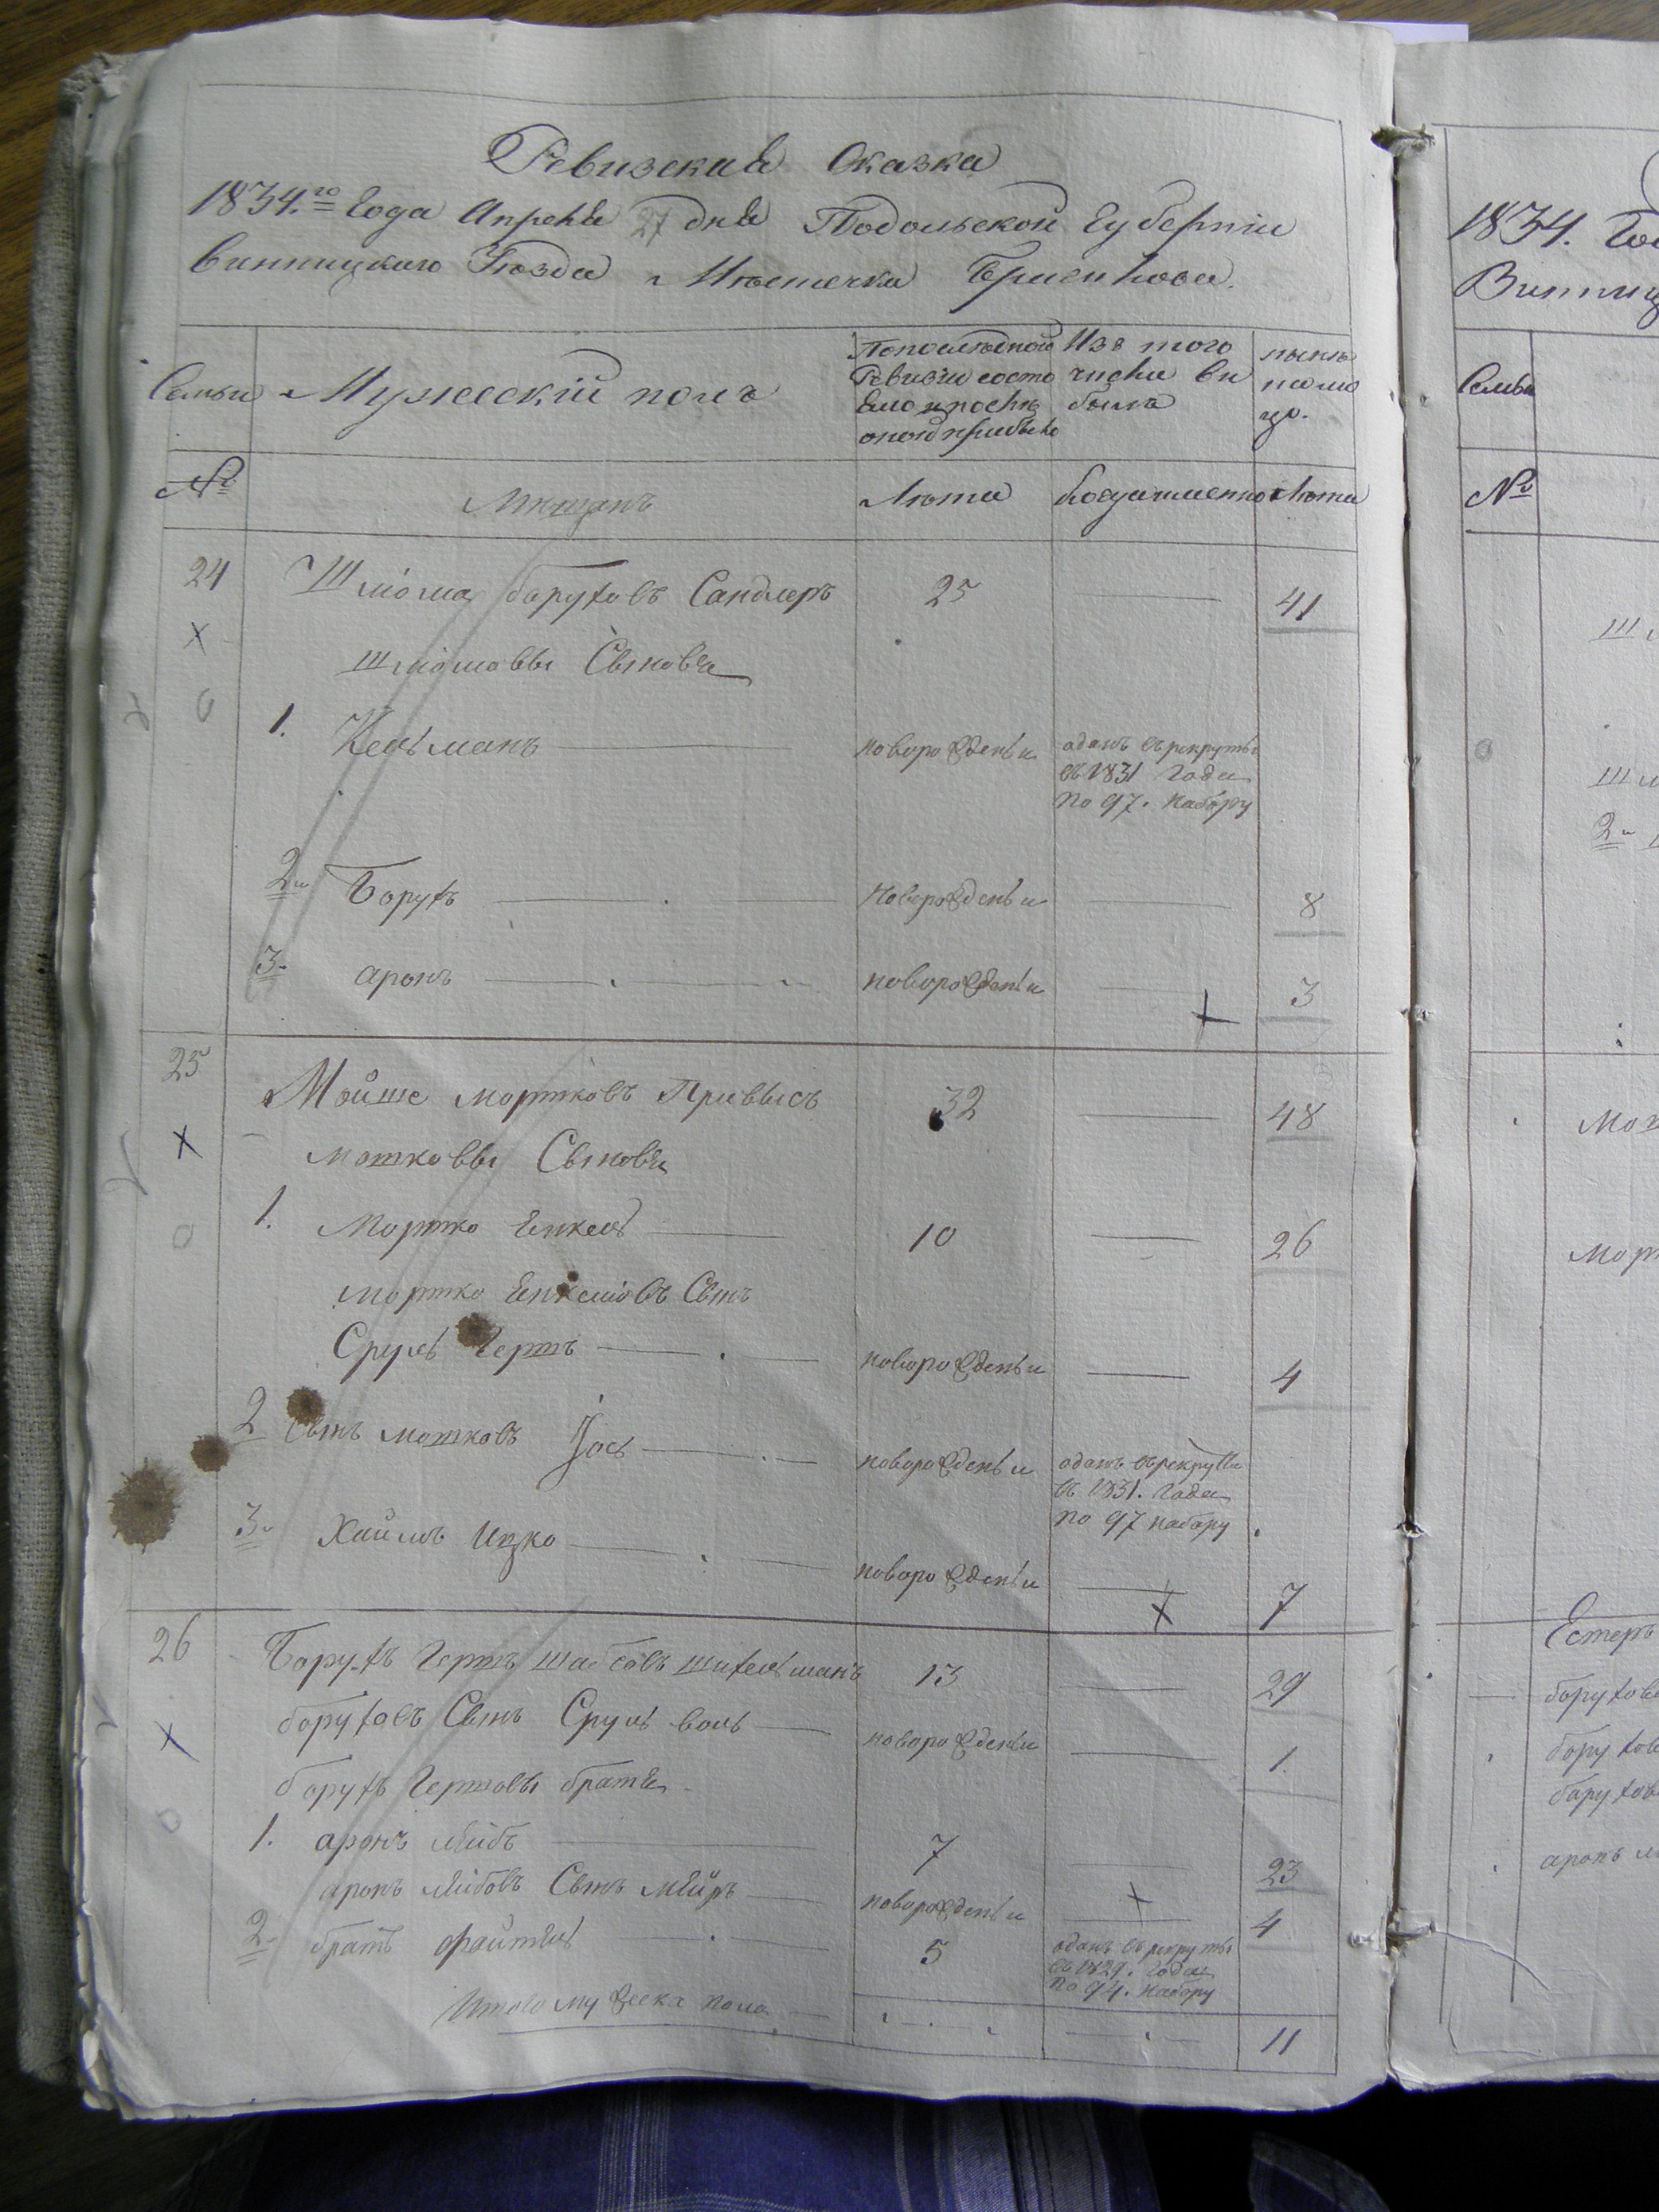 Ревизская Сказка
1834.го Года Апреля 27 дня Подольской Губернии
Винницкаго Уѣзда Мѣстечка Браилова.
Семьи
Мужескій полъ
По последной Ревизіи состо яло и послѣ оной прибыло
Изъ того числа вы было
нынѣ на лицо.
№
Мѣщанъ
Лѣта
Когда именно
Лѣта
24 Шліома Боруховъ Сандлеръ 25 — 41
Шліомовы Сыновья
1. Кельманъ — новорожденъи отданъ въ рекруты
въ 1831 Года
по 97. набору
2. Борухъ — новорожденъи — 8
3. аронъ — новорожденъи — 3
25
Мойше мортковъ Привысъ 32 — 48
мошковы Сыновья
1. Мортко Енкель — 10 — 26
мортко Енкеліовъ Сынъ
Сруль Гершъ — новорожденъи — 4
2 Сынъ мошковъ Іось — новорожденъи отданъ въ рекруты
въ 1831. Года
по 97 набору
3. Хаимъ Ицко — новорожденъи — 7
26 Борухъ Гершъ Шабсовъ Шихельманъ 13 — 29
боруховъ Сынъ Сруль воль — новорожденъи — 1.
борухъ Гершовы братья
1. аронъ Лейбъ — 7 — 23
аронъ Лейбовъ Сынъ Мейръ — новорожденъи — 4
2. братъ Файтель — 5 отданъ въ рекруты
въ 1829. Года
по 94. набору
Итого мужеска пола — 11
1834. Го
Винниц
Семьи
№
Шл
Шл
2.
Мош
Морт
Естеръ
борухов
борухов
борухов
аронъ л